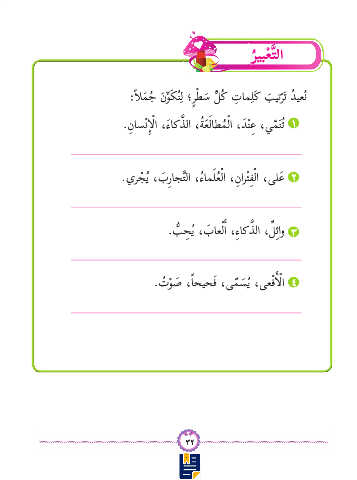 التَّعْبيرُ
نُعيدُ تَرْتيبَ كَلِماتِ كُلِّ سَطْرٍ؛ لِنُكَوِّنَ جُمَلاً:
١ تُنَمّي، عِنْدَ، الْمُطالَعَةُ، الذَّكاءَ، الْإِنْسانِ.
٢ عَلى، الْفِئْرانِ، الْعُلَماءُ، التَّجارِبَ، يُجْري.
٣ وائِلٌ، الذَّكاءِ، أَلْعابَ، يُحِبُّ.
٤ الْأَفْعى، يُسَمّى، فَحيحاً، صَوْتُ.
٣٢